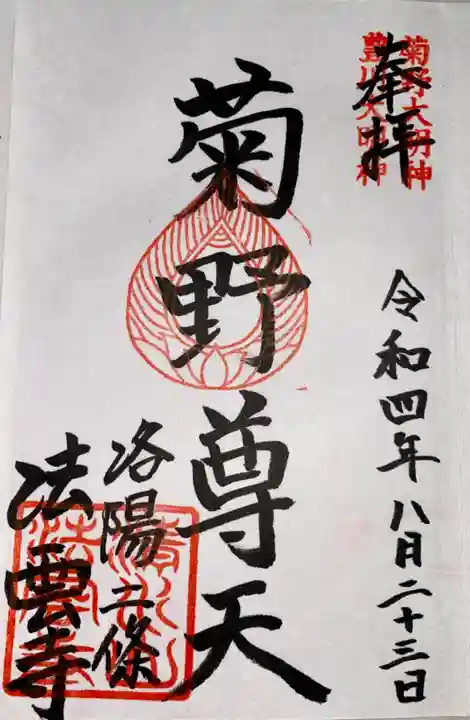 菊野大明神
豊川大明神
奉拝
令和四年八月二十三日
菊野尊天
洛陽二條
法雲寺